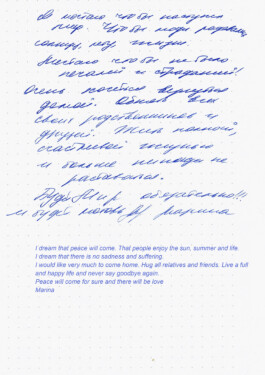 Я мечтаю чтобы наступил
мир. Чтобы люди радовались
солнцу, лету, жизни.
Мечтаю чтобы не было
печалей и страданий!
Очень хочется вернуться
домой. Обнять всех
своих родственников и
друзей. Жить полной,
счастливой жизнью
и больше никогда не
расставаться.
Будет Мир обязательно!!!
и будет любовь Марина
I dream that peace will come. That people enjoy the sun, summer and life
I dream that there is no sadness and suffering.
I would like very much to come home. Hug all relatives and friends. Live a full
and happy life and never say goodbye again.
Peace will come for sure and there will be love
Marina